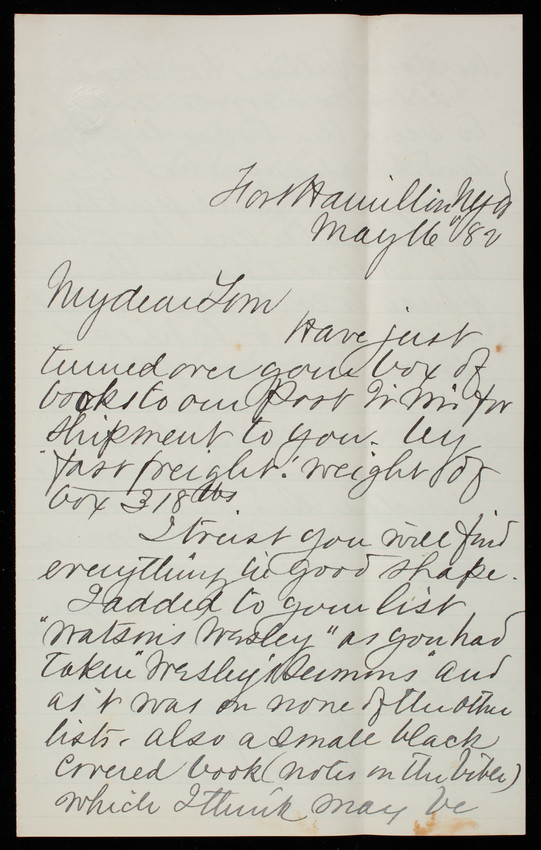 Fort Hamilton NYH
May 16" 82
My dear Tom
Have just
turned over your box of
books to our Post Qr Mr for
shipment to you. by
"fast freight." weight of
box 318 lbs
I trust you will find
everything in good shape.
I added to your list
"Watson's Wesley" as you had
taken "Wesley's Sermons" and
as it was on none of the other
lists. also a small black
covered book (notes on the bible)
which I think may be